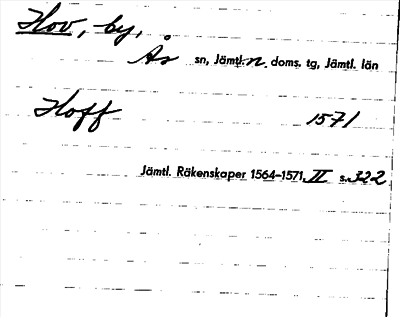 Hov, by,
Ås sn, Jämtl. n. doms. tg, Jämtl. län
Hoff 1571
Jämtl. Räkenskaper 1564-1571, II s. 322